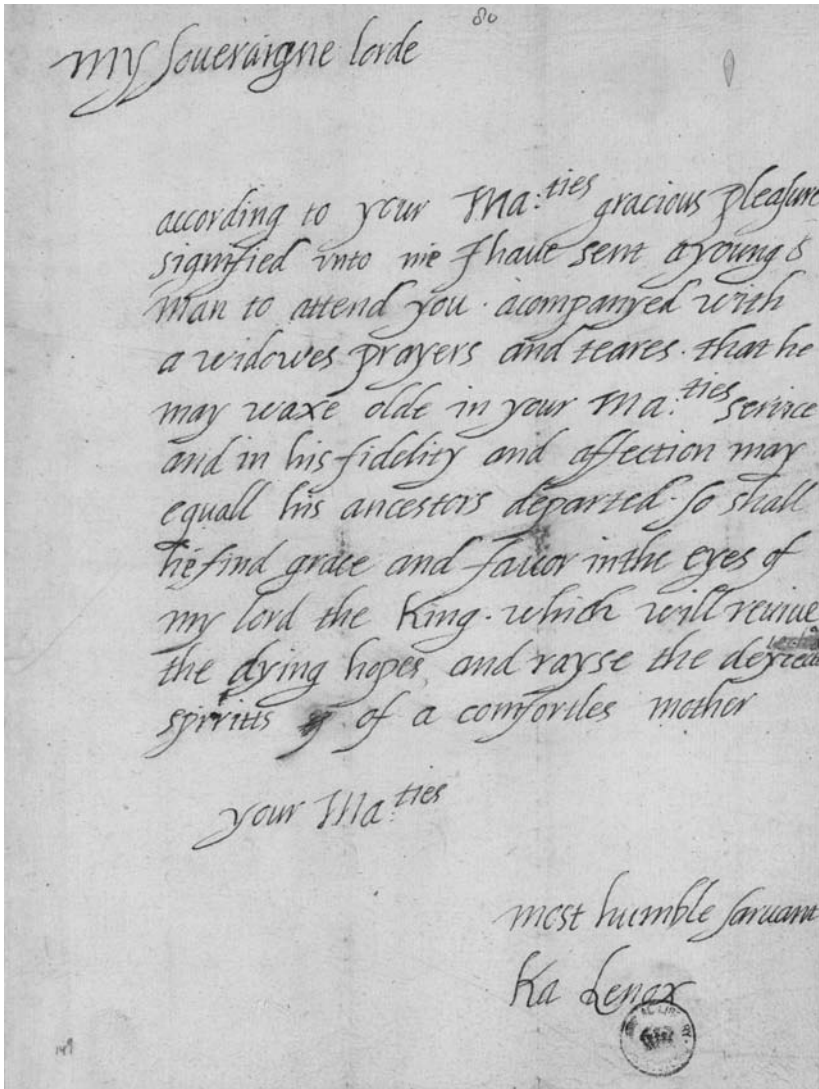 80
my soueraigne lorde
according to your Ma:ties gracious pleasure
signified vnto me I haue sent a young
man to attend you. acompanyed with
a widowes prayers and teares. that he
may waxe olde in your Ma:ties service
and in his fidelity and affection may
equall his ancestors departed. so shall
he find grace and fauor in the eyes of
my lord the King. which will reviue
the dying hopes, and rayse the
spirritts of a comfortles mother
your Ma:ties
most humble saruant
Ka Lenox
149